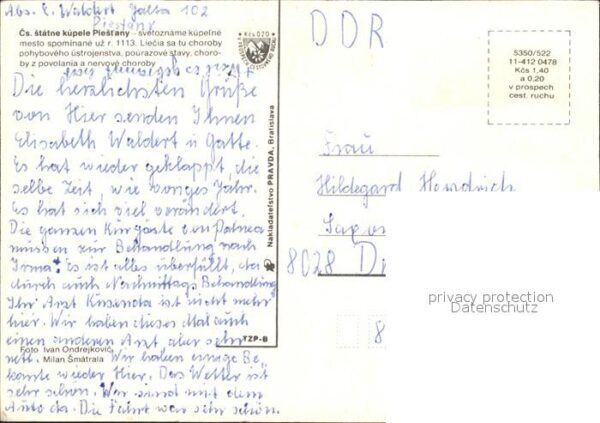 Abs. E. Waldert Jalta 102
Piestany
Čs. štátne kúpele Piešťany – svetoznáme kúpeľné
mesto spomínané už r. 1113. Liečia sa tu choroby
pohybového ústrojenstva, poúrazové stavy, choro-
by z povolania a nervové choroby
Kčs 0,20
Die herzlichsten Grüße
von Hier senden Ihnen
Elisabeth Waldert u Gatte.
Es hat wieder geklappt, die
selbe Zeit, wie voriges Jahr.
Es hat sich viel verändert.
Die ganzen Kurgäste von
müssen zur Behandlung nach
Irma. Es ist alles überfüllt, da
durch auch Nachmittags Behandlung
Ihr Arzt ist nicht mehr
hier. Wir haben dieses Mal auch
einen anderen Arzt, aber sehr
nett. Wir haben einige Be
kante wieder Hier. Das Wetter ist
sehr schön. Wir sind mit dem
Auto da. Die Fahrt war sehr schön.
Foto Ivan Ondrejkovič,
Milan Šmátrala
Nakladateľstvo PRAVDA, Bratislava
TZP-B
DDR
5350/522
11-412 0478
Kčs 1,40
a 0,20
v prospech
cest. ruchu
Frau
Hildegard Hendrich
8028 D
8
privacy protection
Datenschutz